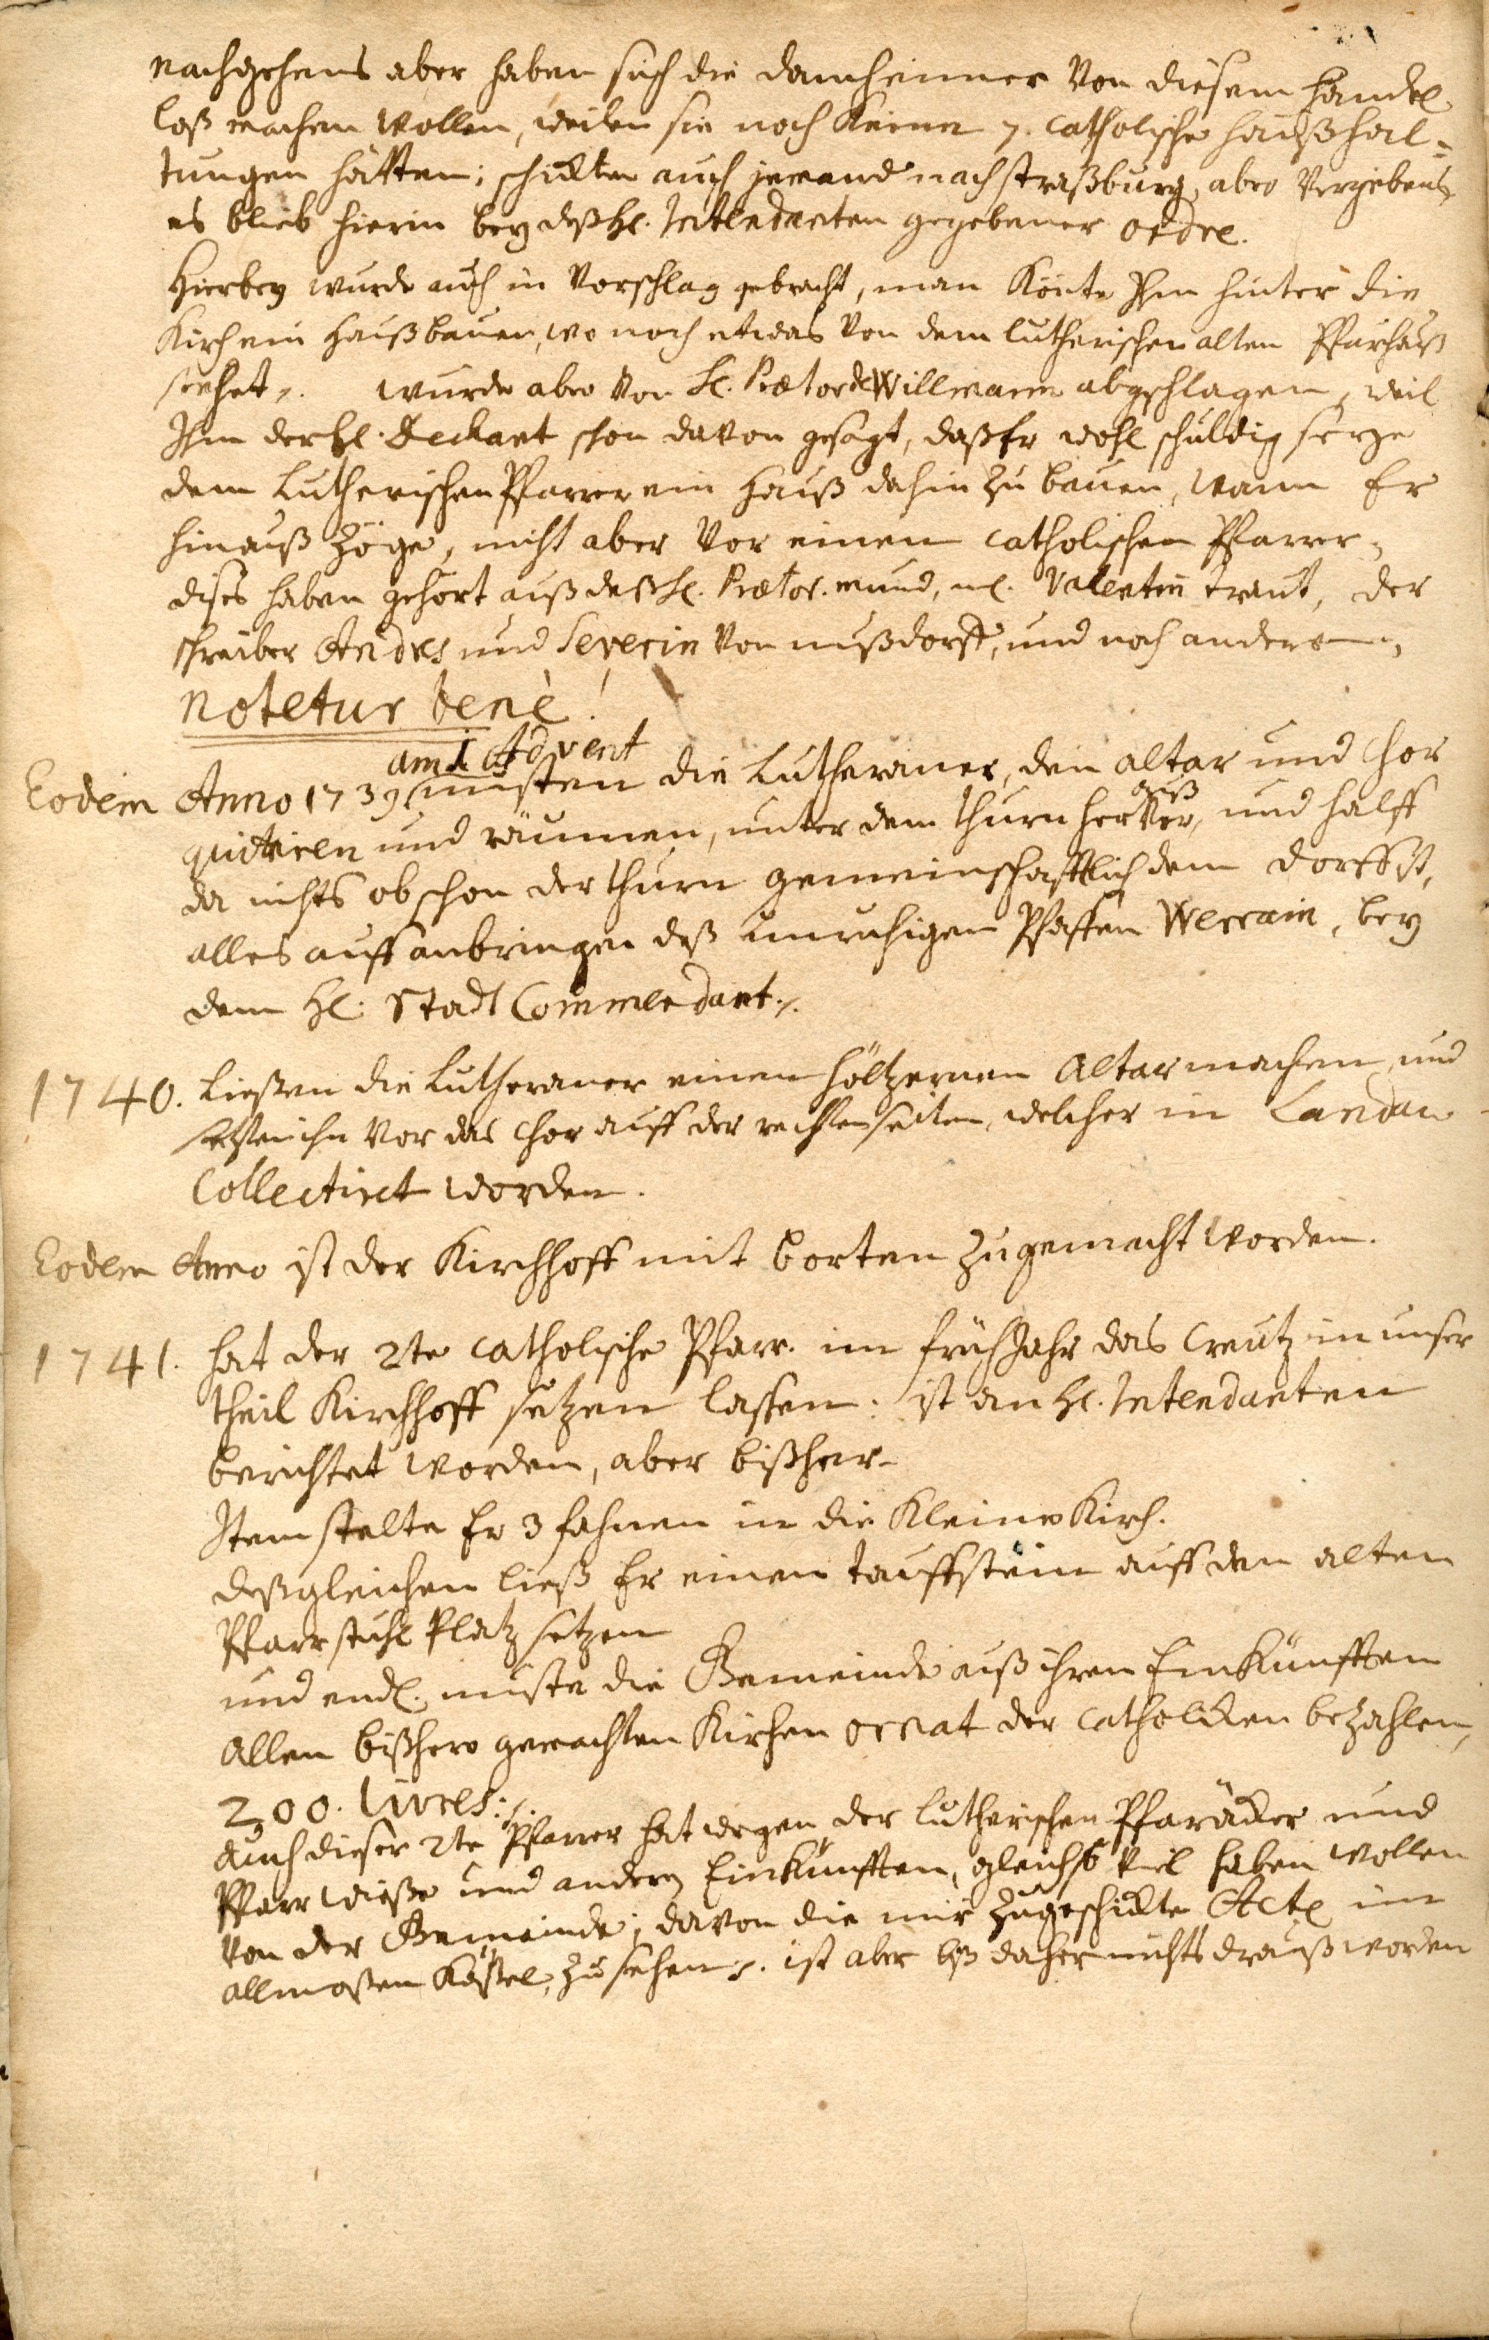 nachgehens aber haben sich die damheimer von diesem handel
loß machen wollen, weilen sie noch keine 7. catholische haußhal=
tungen hätten; schickten auch jemand nach straßburg, aber vergebens
es blieb hierin bey deß H. Intendanten gegebener ordre.
Hierbey wurde auch in Vorschlag gebracht, man könte Ihm hinter die
Kirch ein Hauß bauen, wo noch etwas von dem lutherischen alten Pfarhauß
stehet. wurde aber von H. Prætor de Willmann abgeschlagen, weil
Ihm der H. Dechant schon davon gesagt, daß Er wohl schuldig seye
dem Lutherischen Pfarrer ein Hauß dahin zu bauen, wann Er
hinauß zöge, nicht aber vor einen catholischen Pfarrer,
dises haben gehört auß deß H. Prætor. mund, nl. Valentin traut, der
schreiber Andres und Severin von nußdorff, und noch andere,
Notetur bene!
am I. Advent
Eodem Anno 1739 musten die Lutheraner, den altar und Chor
auß
quitiren und räumen, unter dem thurn hervor, und halff
da nichts obschon der thurn gemeinschafftlich dem dorff ist,
alles auff anbringen deß unruhigen Pfaffen Werrain, bey
dem H. Stadt Commendant.
1740. Ließen die Lutheraner einen höltzernen Altar machen und
setzten ihn vor das Chor auff der rechten seiten, welcher in Landau
Collectiret worden.
Eodem Anno ist der Kirchhoff mit borten zugemacht worden.
1741. hat der 2te catholische Pfarr. im frühJahr das Creutz in unser
theil Kirchhoff setzen lassen: ist an H. Intendanten
berichtet worden, aber bißher-
Item stelte Er 3 fahnen in die Kleine Kirch.
deßgleichen ließ Er einen tauffstein auff den alten
Pfarrstuhl Platz setzen
und endl. muste die Gemeinde auß ihren Einkünfften
Allen bißhero gemachten Kirchen ornat der catholicken bezahlen,
200. livres:
Auch dieser 2te Pfarrer hat wegen der lutherischen Pfaräcker und
Pfarrwieße und andern Einkünfften, gleichso viel haben wollen
von der Gemeinde; davon die mir zugeschickte Acte im
allmoßen Kästel, zu sehen. ist aber biß daher nichts drauß worden